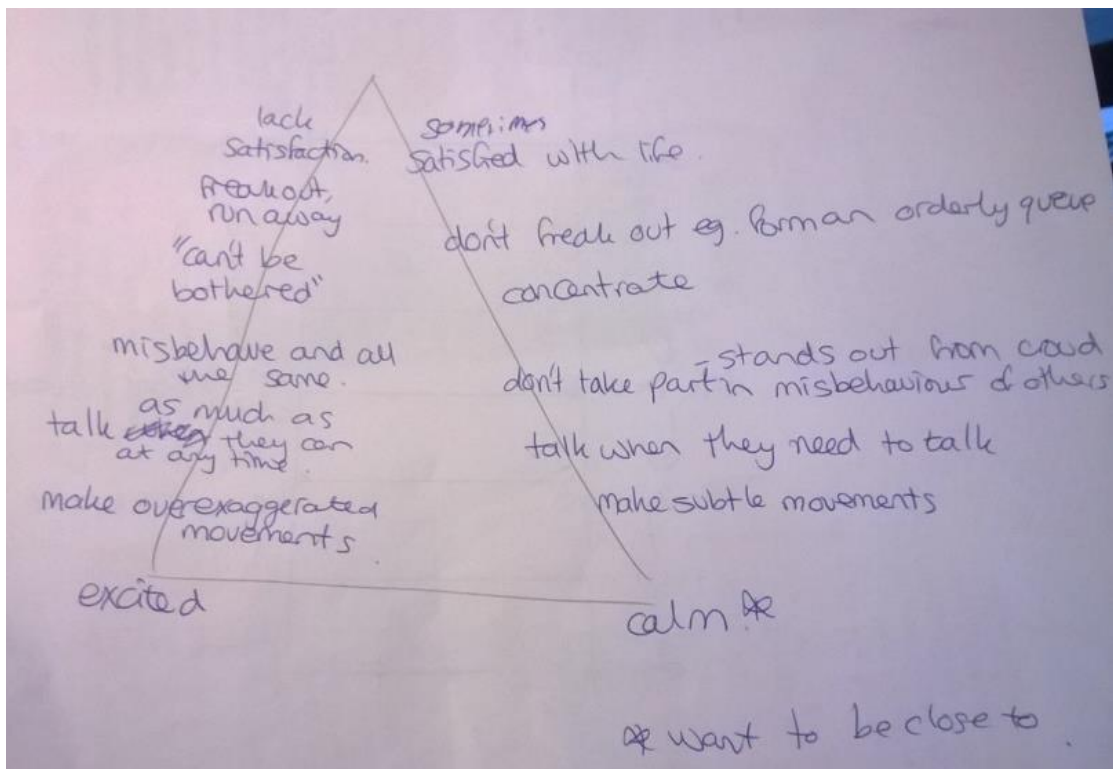 lack
satisfaction.
freakout,
run away
"can't be
bothered"
misbehave and all
the same.
as much as
talk they can
at any time.
make overexaggerated
movements.
excited
sometimes
satisfied with life.
don't freak out eg. Form an orderly queue
concentrate
- stands out from crowd
don't take part in misbehaviour of others
talk when they need to talk
make subtle movements
calm *
* want to be close to.